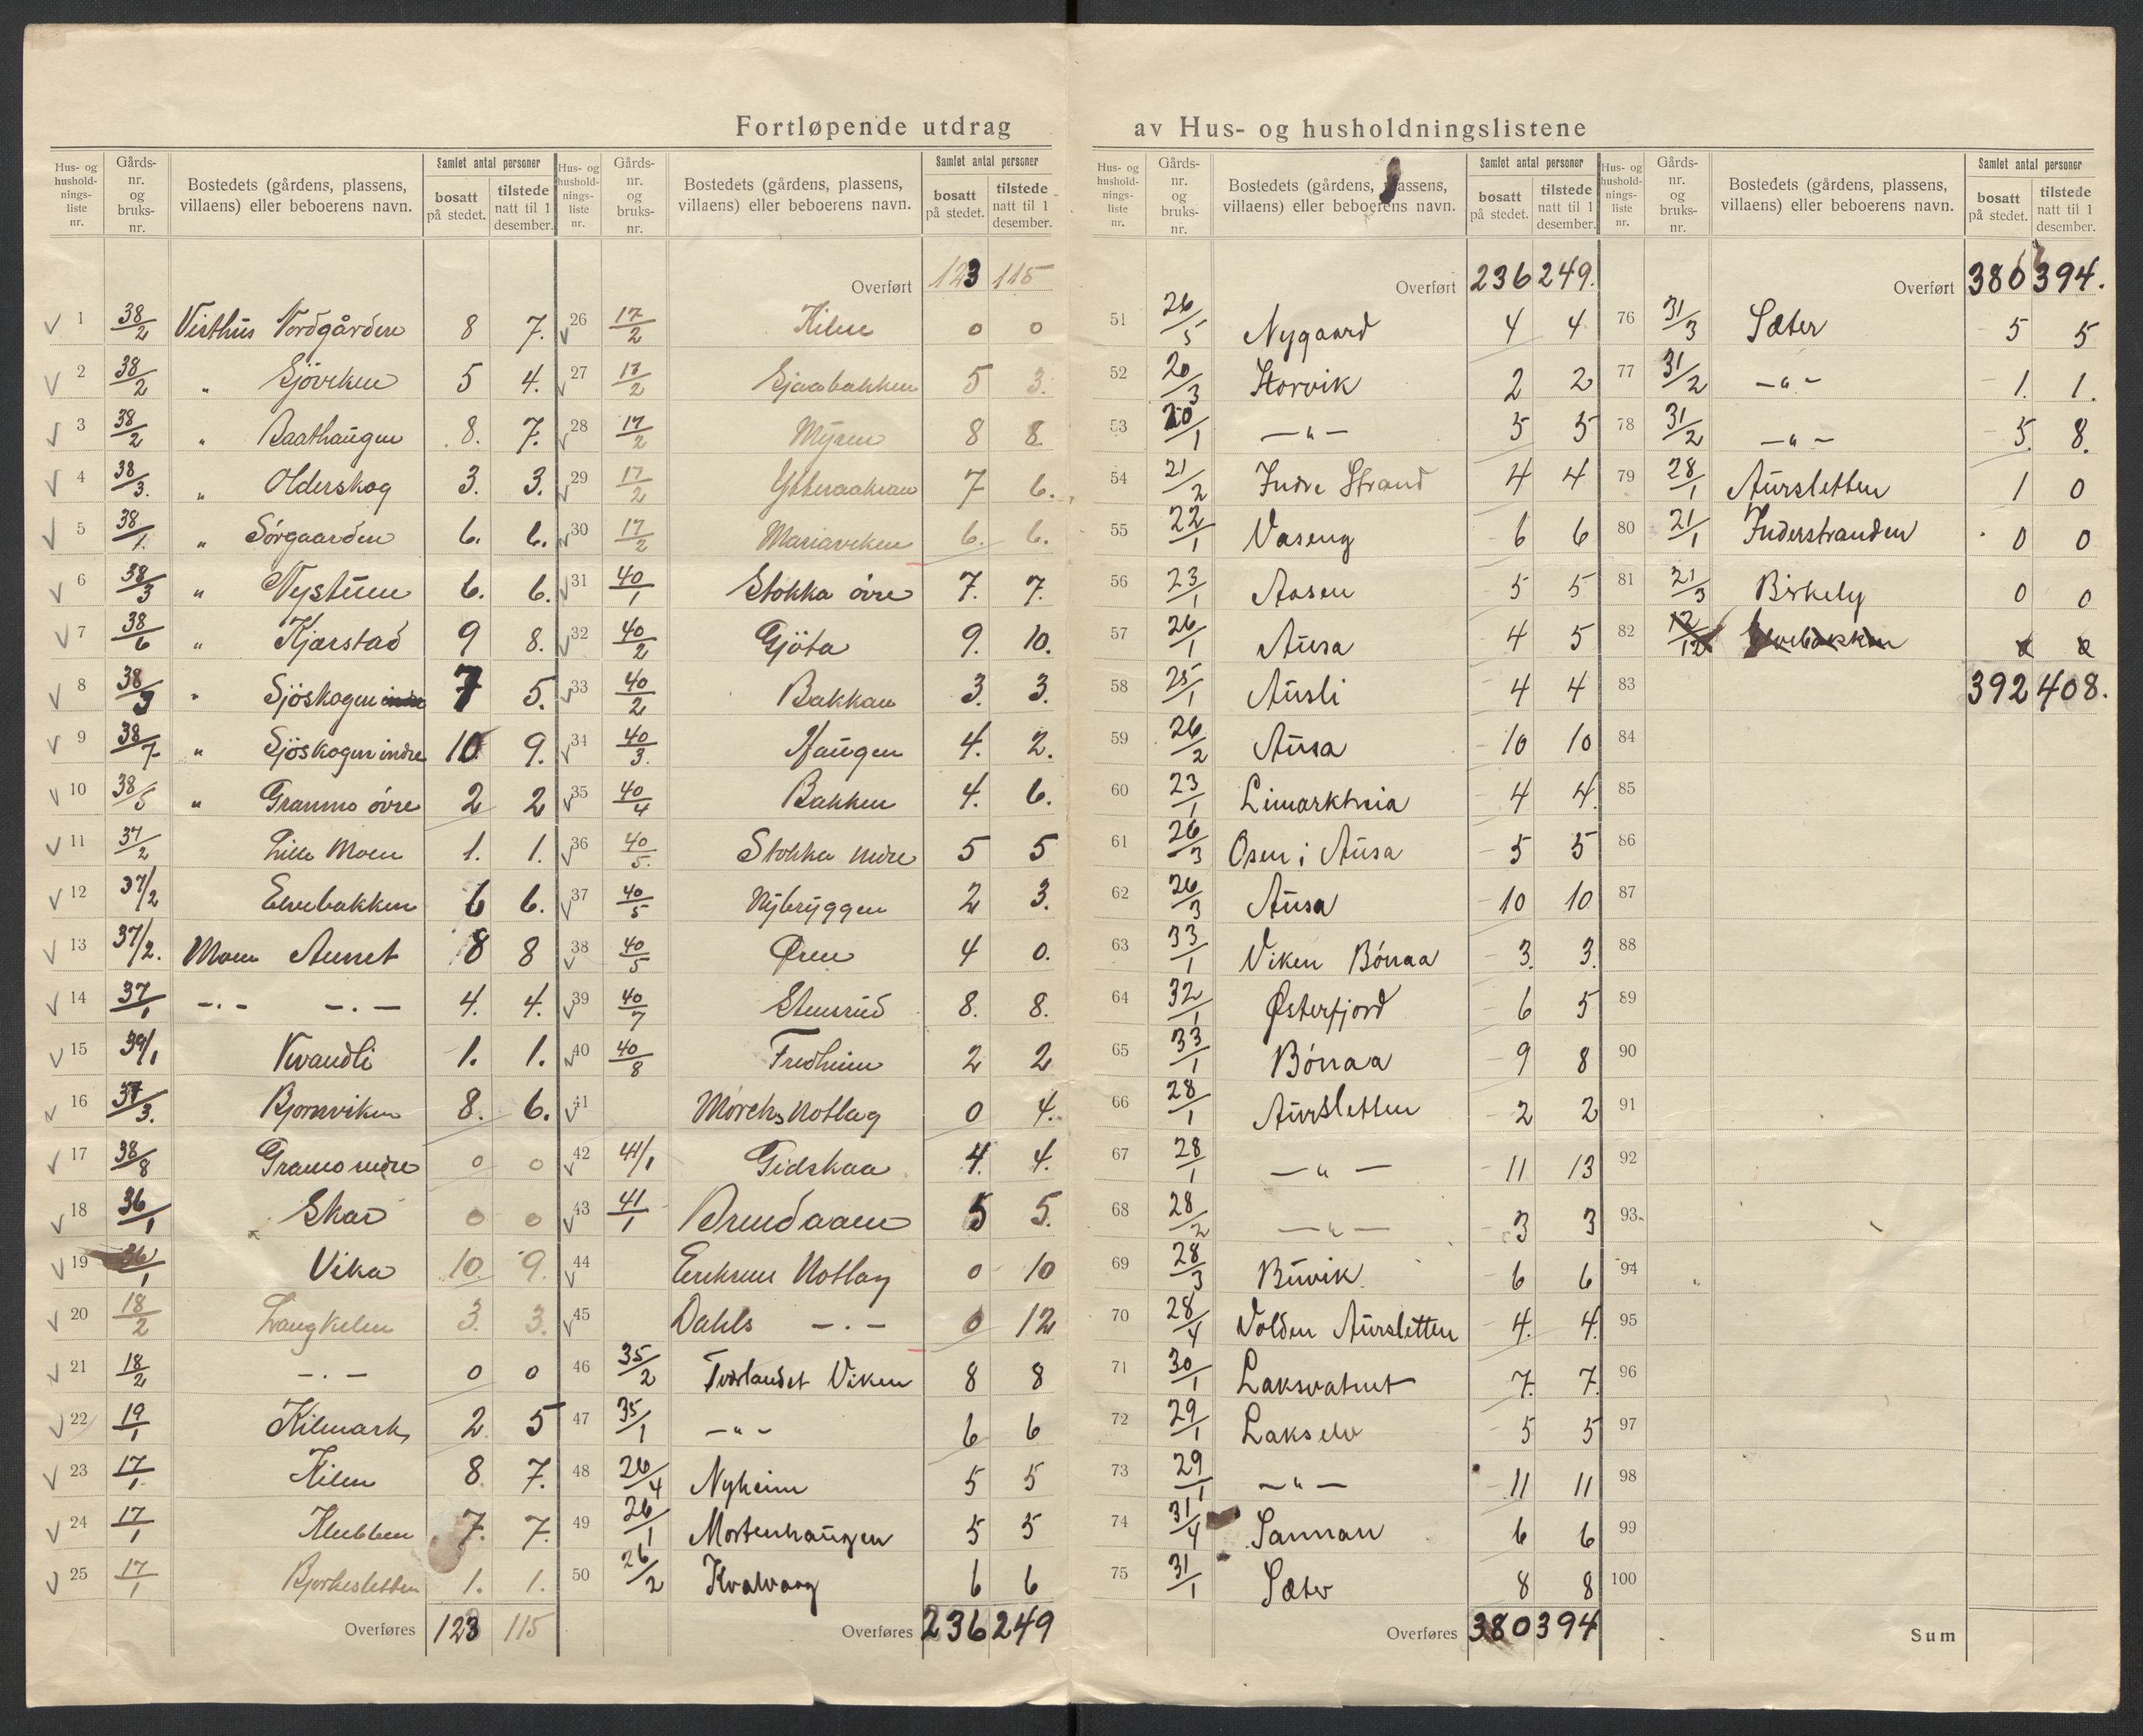 Fortløpende utdrag av Hus- og husholdningslistene
Hus- og husholdnings-liste nr. | Gårds-nr. og bruks-nr. | Bostedets (gårdens, plassens, villaens) eller beboerens navn. | Samlet antal personer | bosatt på stedet. | tilstede natt til 1 desember.
1 38/2 Visthus Nordgården 8 7.
2 38/2 " Sjöviken 5 4.
3 38/2 " Baathaugen 8. 7.
4 38/3. " Olderskog 3. 3.
5 38/1. " Sörgaarden 6. 6.
6 38/3 " Nystuen 6. 6.
7 38/6 " Kjærstad 9 8.
8 38/9 " Sjöskogen indre 7 5.
9 38/7 " Sjöskogen indre 10 9.
10 38/5 " Granmo övre 2 2
11 37/2 Lille Moen 1. 1.
12 37/2 Elvebakken 6 6.
13 37/2. Moen Aunet 8 8
14 37/1 -.- -.- 4. 4.
15 39/1 Kvandli 1. 1.
16 37/3. Bjornviken 8. 6.
17 38/8 Gramo nedre 0 0
18 36/1 Skar 0 0
19 36/1 Vika 10. 9.
20 18/2 Langkilen 3. 3.
21 18/2 -.- 0 0
22 19/1 Kilmark 2 5
23 17/1. Kilen 8 7.
24 17/1 Klubben 7. 7.
25 17/1 Bjorkesletten 1. 1.
Overføres 123 115
Overført 123 115
26 17/2 Kilen 0 0
27 17/2 Sjaabakken 5 3.
28 17/2 Myren 8 8.
29 17/2 Ytteraakran 7 6.
30 17/2 Mariaviken 6. 6.
31 40/1 Stokka övre 7. 7.
32 40/2 Gjöta 9. 10.
33 40/2 Bakkan 3. 3.
34 40/3. Haugen 4. 2.
35 40/4 Bakken 4. 6.
36 40/5. Stokka nedre 5 5
37 40/5 Nybryggen 2 3.
38 40/5 Øren 4 0.
39 40/7 Stensrud 8. 8.
40 40/8 Fredheim 2 2
41 Mörchs Notlag 0 4.
42 41/1 Gidskaa 4. 4.
43 41/1 Brendaaen 5 5.
44 Eriksens Notlag 0 10
45 Dahls -.- 0 12
46 35/2 Tverlandet Viken 8 8
47 35/1 -"- 6 6
48 26/4 Nyheim 5 5
49 26/1 Mortenhaugen 5 5
50 26/2 Kvalvaag 6 6
Overføres 236 249
Hus- og husholdnings-liste nr. | Gårds-nr. og bruks-nr. | Bostedets (gårdens, plassens, villaens) eller beboerens navn. | Samlet antal personer | bosatt på stedet. | tilstede natt til 1 desember.
Overført 236 249.
51 26/5 Nygaard 4 4
52 20/3 Storvik 2 2
53 20/1 -"- 5 5
54 21/2 Indre Strand 4 4
55 22/1 Vaseng 6 6
56 23/1 Aasen 5 5
57 26/1 Ausa 4 5
58 25/1 Ausli 4 4
59 26/2 Ausa 10 10
60 23/1 Limarkheia 4 4.
61 26/3 Osen i Ausa 5 5
62 26/3 Ausa 10 10
63 33/1 Viken Bönaa 3. 3.
64 32/1 Østerfjord 6 5
65 33/1 Bönaa 9 8
66 28/1 Aursletten 2 2
67 28/1 -"- 11 13
68 28/2 -"- 3 3
69 28/3 Buvik 6 6
70 28/4 Volden Aursletten 4. 4.
71 30/1 Laksvatnet 7. 7.
72 29/1 Lakselv 5 5
73 29/1 -"- 11 11
74 31/4 Sannan 6 6
75 31/1 Sæter 8 8
Overføres 380 394
Overført 380 394.
76 31/3 Sæter 5 5
77 31/2 -"- 1. 1.
78 31/2 -"- 5. 8.
79 28/1 Aursletten 1 0
80 21/1 Inderstranden 0 0
81 21/3 Birkely 0 0
82
83 392 408.
84
85
86
87
88
89
90
91
92
93.
94
95
96
97
98
99
100
Sum